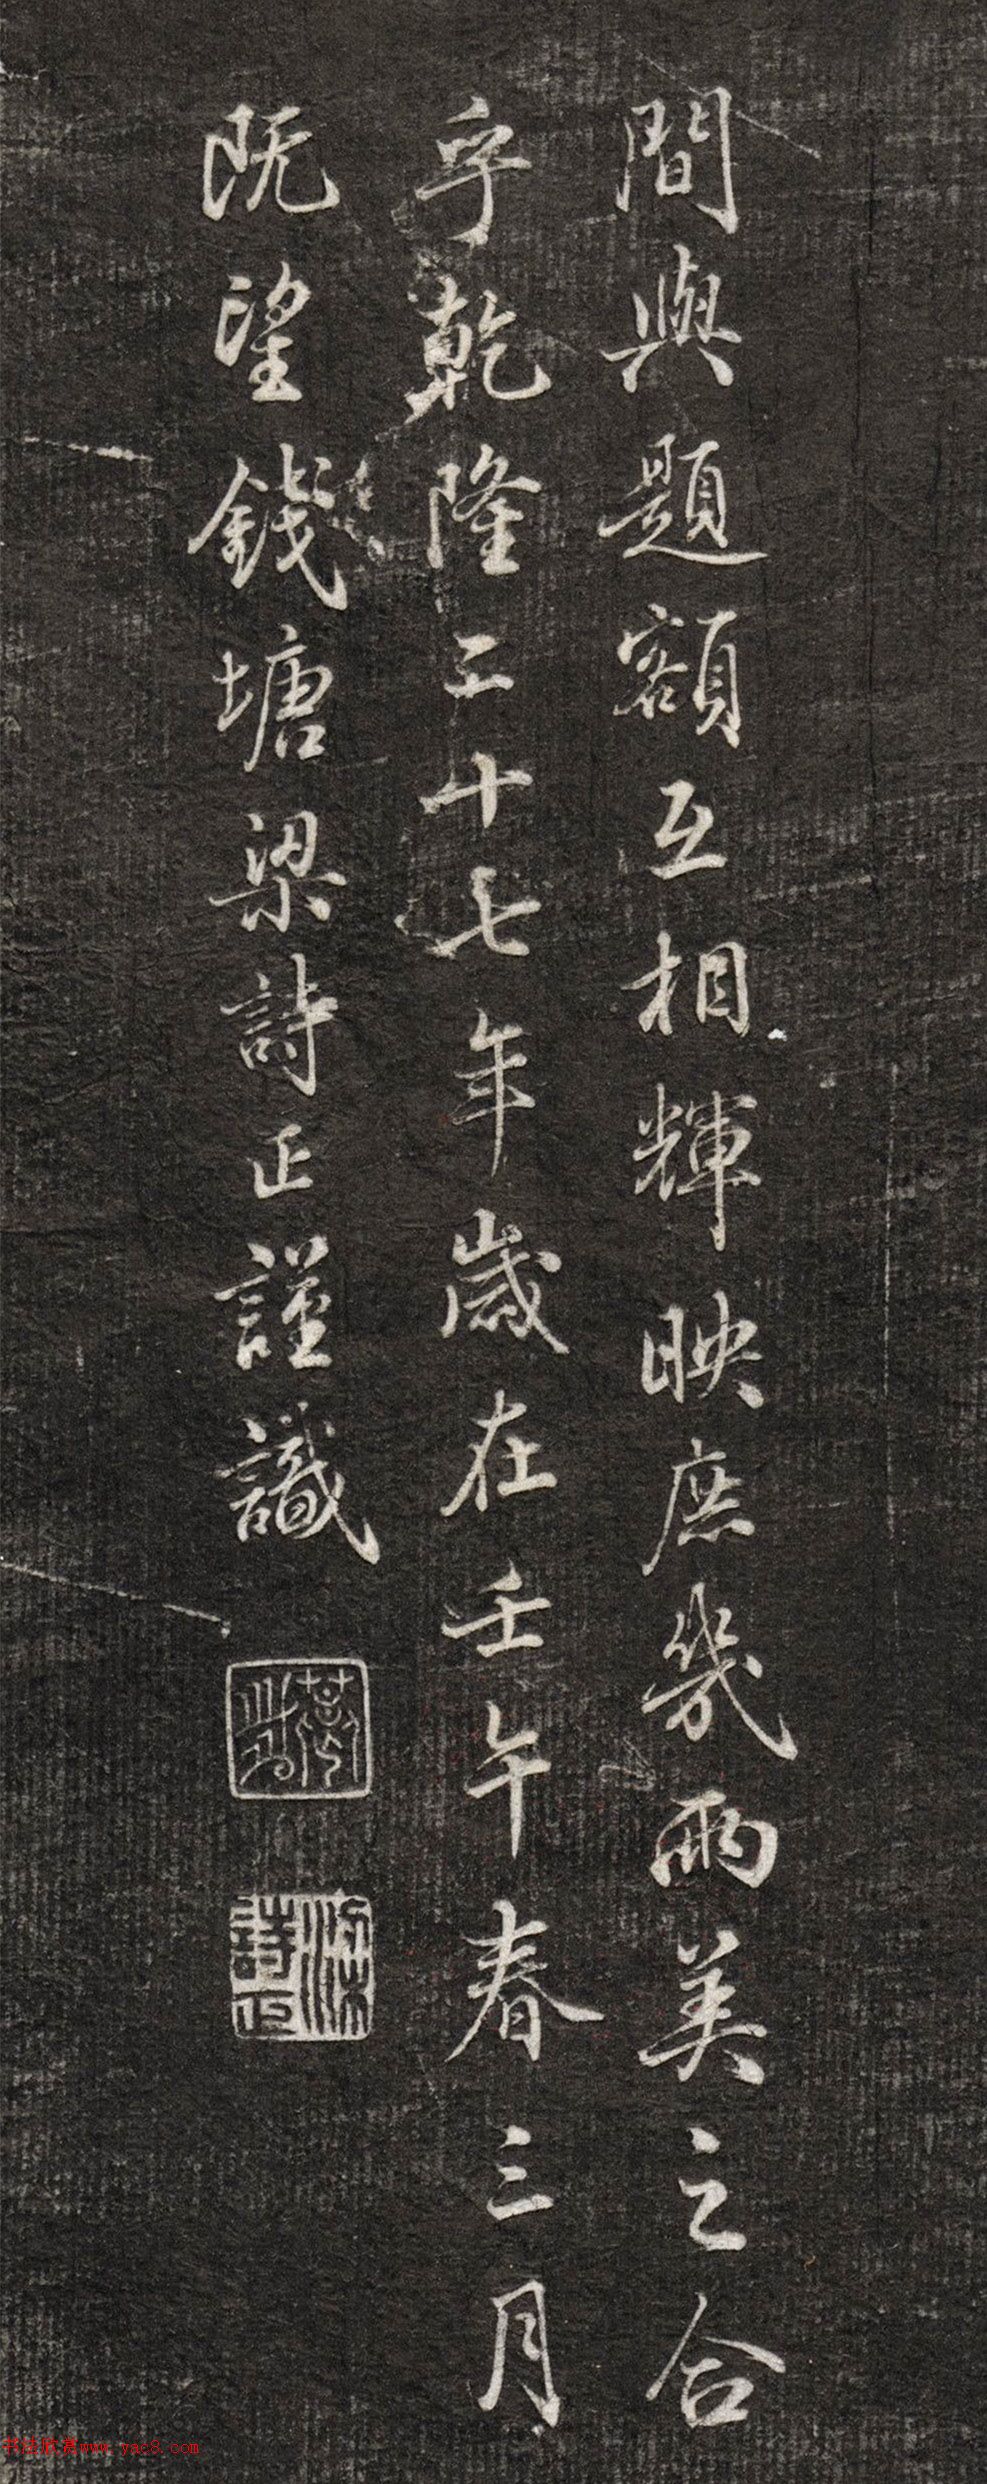 間與題額互相輝映庶幾兩美之合
乎乾隆二十七年歲在壬午春三月
既望錢塘梁詩正謹識
书法欣赏www.yac8.com